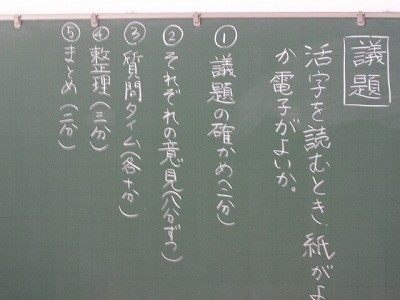 議題
活字を読むとき、紙がよ
か電子がよいか。
①議題の確かめ(一分)
②それぞれの意見(八分ずつ)
③質問タイム(各十分)
④整理(三分)
⑤まとめ(二分)